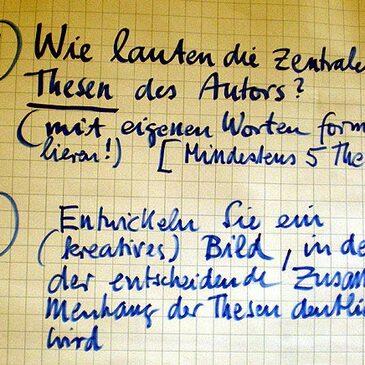 Wie lauten die zentrale
Thesen des Autors?
(mit eigenen Worten form
lieren!) [Mindestens 5 The
Entwickeln Sie ein
(kreatives) Bild, in de
der entscheidende Zusam
menhang der Thesen deutli
wird